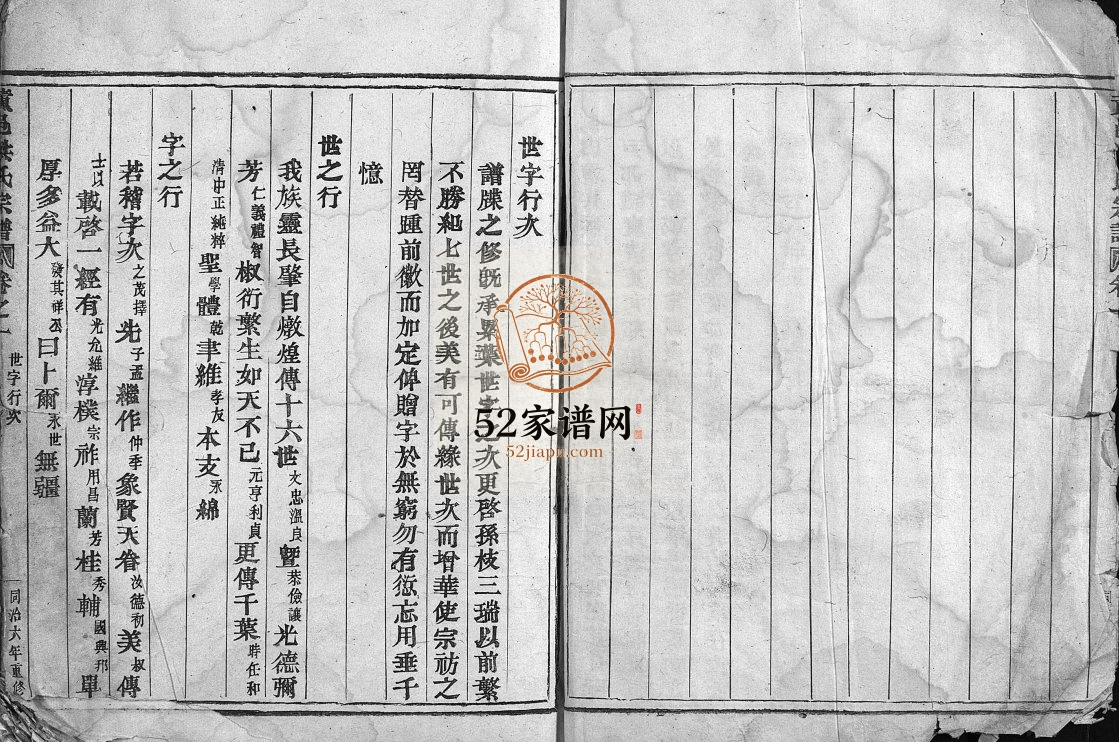 世字行次
譜牒之修既承畢葉世字之次更啓孫枝三瑞以前繁
不勝紀七世之後美有可傳緣世次而增華使宗祊之
罔替踵前徽而加定俾贈字於無窮勿有愆忘用垂千
憶
世之行
我族靈長肇自燉煌傳十六世文忠溫良曁恭儉讓光德彌
芳仁義禮智椒衍繁生如天不已元亨利貞更傳千葉時任和
清中正純粹聖學體乾聿維孝友本支永綿
字之行
若稽字次之茂擇先子孟繼作仲季象賢天眷汝德初美叔傳
士以載啓一經有光允維淳樸宗祚用昌蘭芳桂秀輔國興邦單
厚多益大發其祥曰卜爾永世無疆
洪氏宗譜 卷之一 世字行次 同治六年重修
52家谱网
52jiapu.com